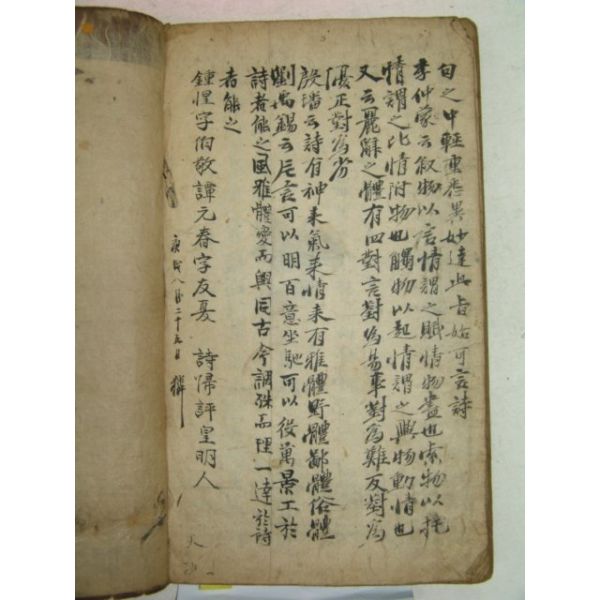 句之中輕重悉異妙達此旨始可言詩
李仲蒙云叙物以言情謂之賦情物盡也索物以托
情謂之比情附物也觸物以起情謂之興物動情也
又云麗辭之體有四對言對爲易事對爲難反對爲
優正對爲劣
殷璠云詩有神來氣來情來有雅體野體鄙體俗體
劉禹錫云片言可以明百意坐馳可以役萬景工於
詩者能之風雅體變而興同古今調殊而理一達於詩
者能之
鍾惺字伯敬譚元春字友夏 詩歸評皇明人
庚戌八月二十五日